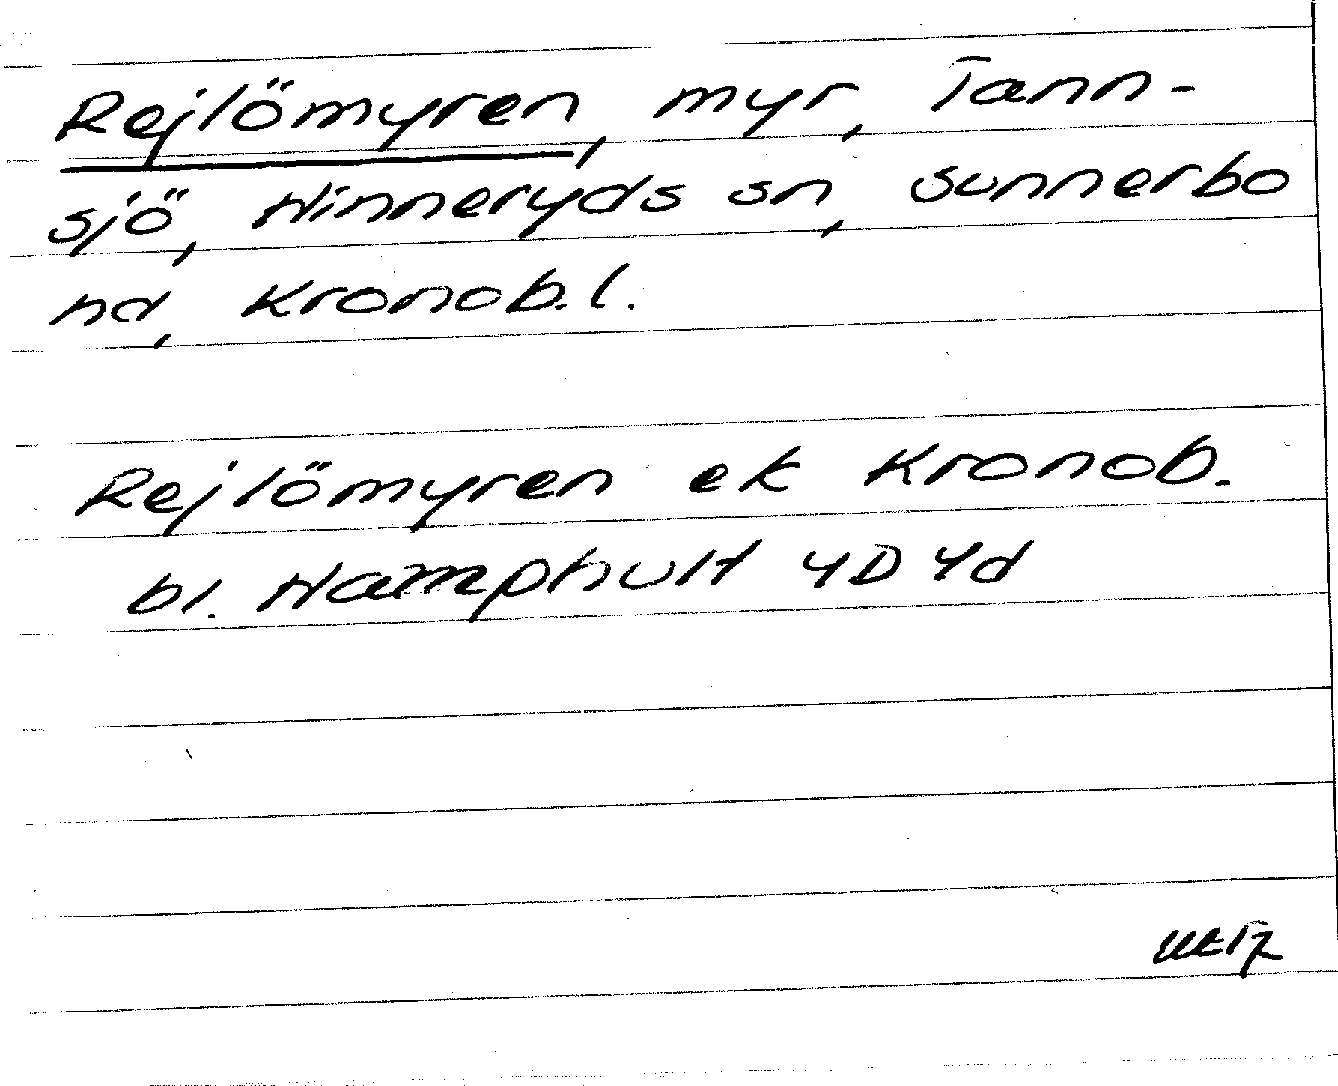 Rejlömyren, myr, Tann-
sjö, Hinneryds sn, Sunnerbo
hd, Kronob. l.
Rejlömyren ek Kronob.
bl. Hamphult 4D 4d